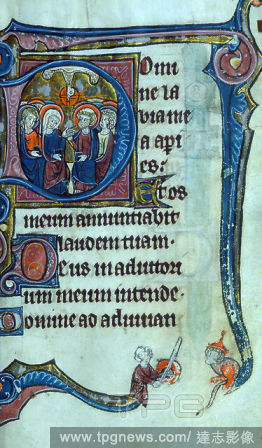 Domi
ne la
bia me
a apı
es:
Et os
meum annuntiabit
laudem tuam.
Deus in adiutori
um meum intende.
Domine ad adiuuan
TPG
www.tpgnews.com / 達志影像